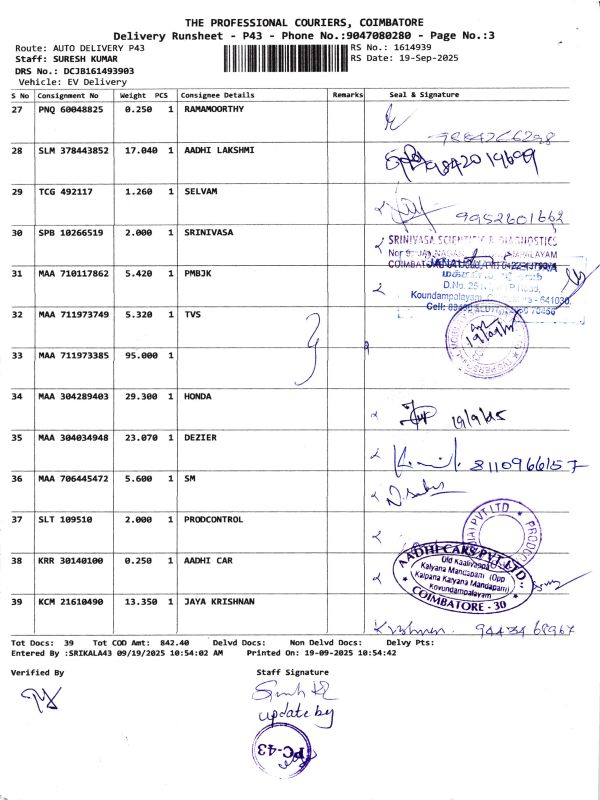 THE PROFESSIONAL COURIERS, COIMBATORE
Delivery Runsheet - P43 - Phone No.:9047080280 - Page No.:3
Route: AUTO DELIVERY P43 RS No.: 1614939
Staff: SURESH KUMAR RS Date: 19-Sep-2025
DRS No.: DCJB161493903
Vehicle: EV Delivery
S No Consignment No Weight PCS Consignee Details Remarks Seal & Signature
27 PNQ 60048825 0.250 1 RAMAMOORTHY
9884266298
28 SLM 378443852 17.040 1 AADHI LAKSHMI
9842019699
29 TCG 492117 1.260 1 SELVAM
9952601662
30 SPB 10266519 2.000 1 SRINIVASA
SRINIVASA SCIENTIFIC & DIAGNOSTICS
31 MAA 710117862 5.420 1 PMBJK
D.No. 25
Koundampalayam, - 641030
Cell:
32 MAA 711973749 5.320 1 TVS
19/09/
33 MAA 711973385 95.000 1
34 MAA 304289403 29.300 1 HONDA
19/9/25
35 MAA 304034948 23.070 1 DEZIER
8110966157
36 MAA 706445472 5.600 1 SM
37 SLT 109510 2.000 1 PRODCONTROL
PVT LTD
38 KRR 30140100 0.250 1 AADHI CAR
AADHI CARS PVT LTD
Old Kaalivappa
Kalyana Mandapam (Opp
Kalpana Kalyana Mandapam)
Kovundampalayam
COIMBATORE - 30
39 KCM 21610490 13.350 1 JAYA KRISHNAN
Krishnan. 9443468967
Tot Docs: 39 Tot COD Amt: 842.40 Delvd Docs: Non Delvd Docs: Delvy Pts:
Entered By :SRIKALA43 09/19/2025 10:54:02 AM Printed On: 19-09-2025 10:54:42
Verified By Staff Signature
update by
PC-43